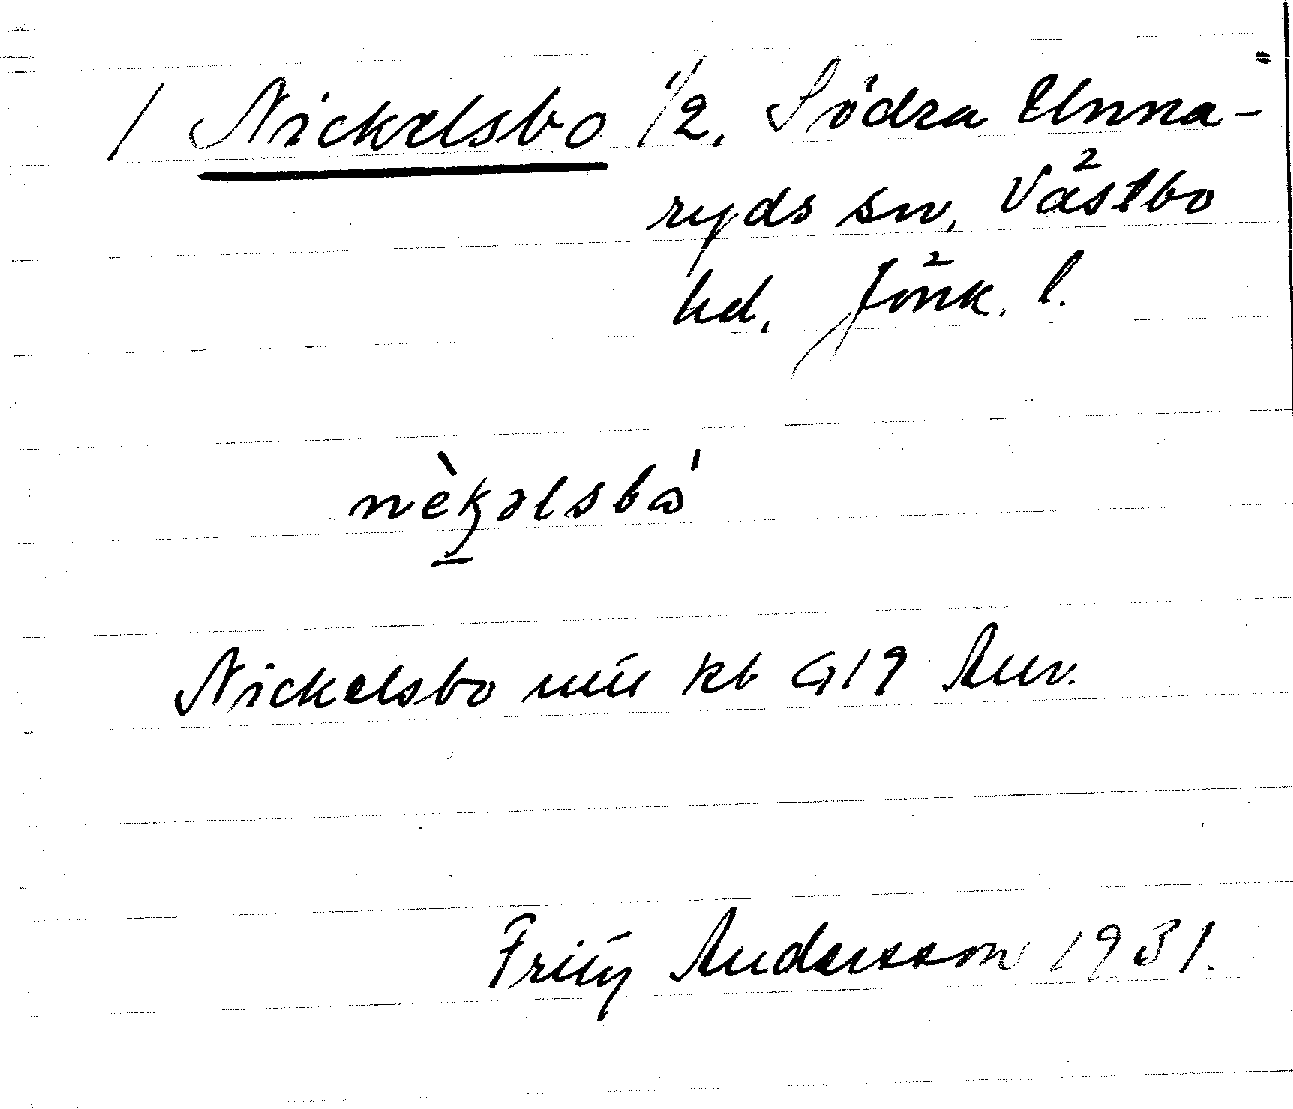 / Nickelsbo 1/2, Södra Unna-
ryds sn, Västbo
hd, Jönk. l.
nèkəlsbo
Nickelsbo kb 919
Fritz Andersson 1931.